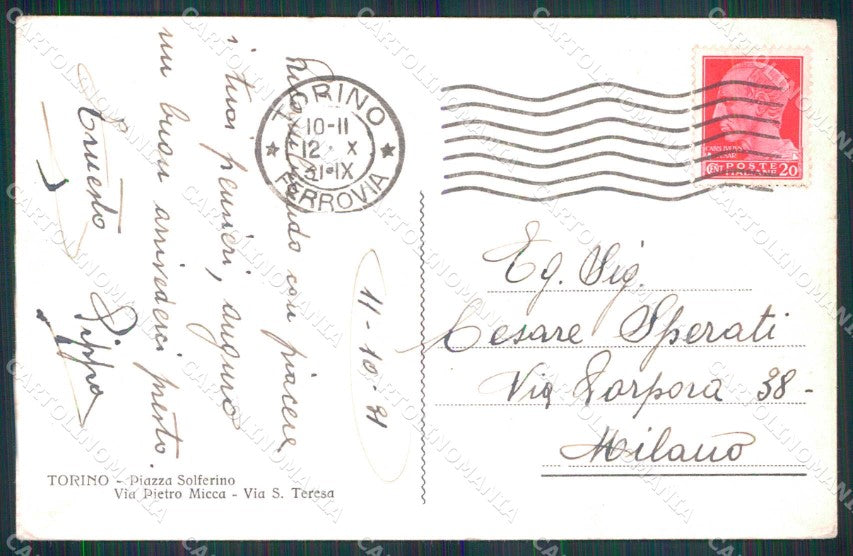 11-10-31
Ricambiando con piacere
i tuoi pensieri, auguro
un buon arrivederci presto.
Ernesto Pippo
TORINO
10-11
12 · X
31·IX
FERROVIA
POSTE
ITALIANE
CENT 20
Eg. Sig.
Cesare Sperati
Via Porpora 38-
Milano
TORINO - Piazza Solferino
Via Pietro Micca - Via S. Teresa
CARTOLINOMANIA